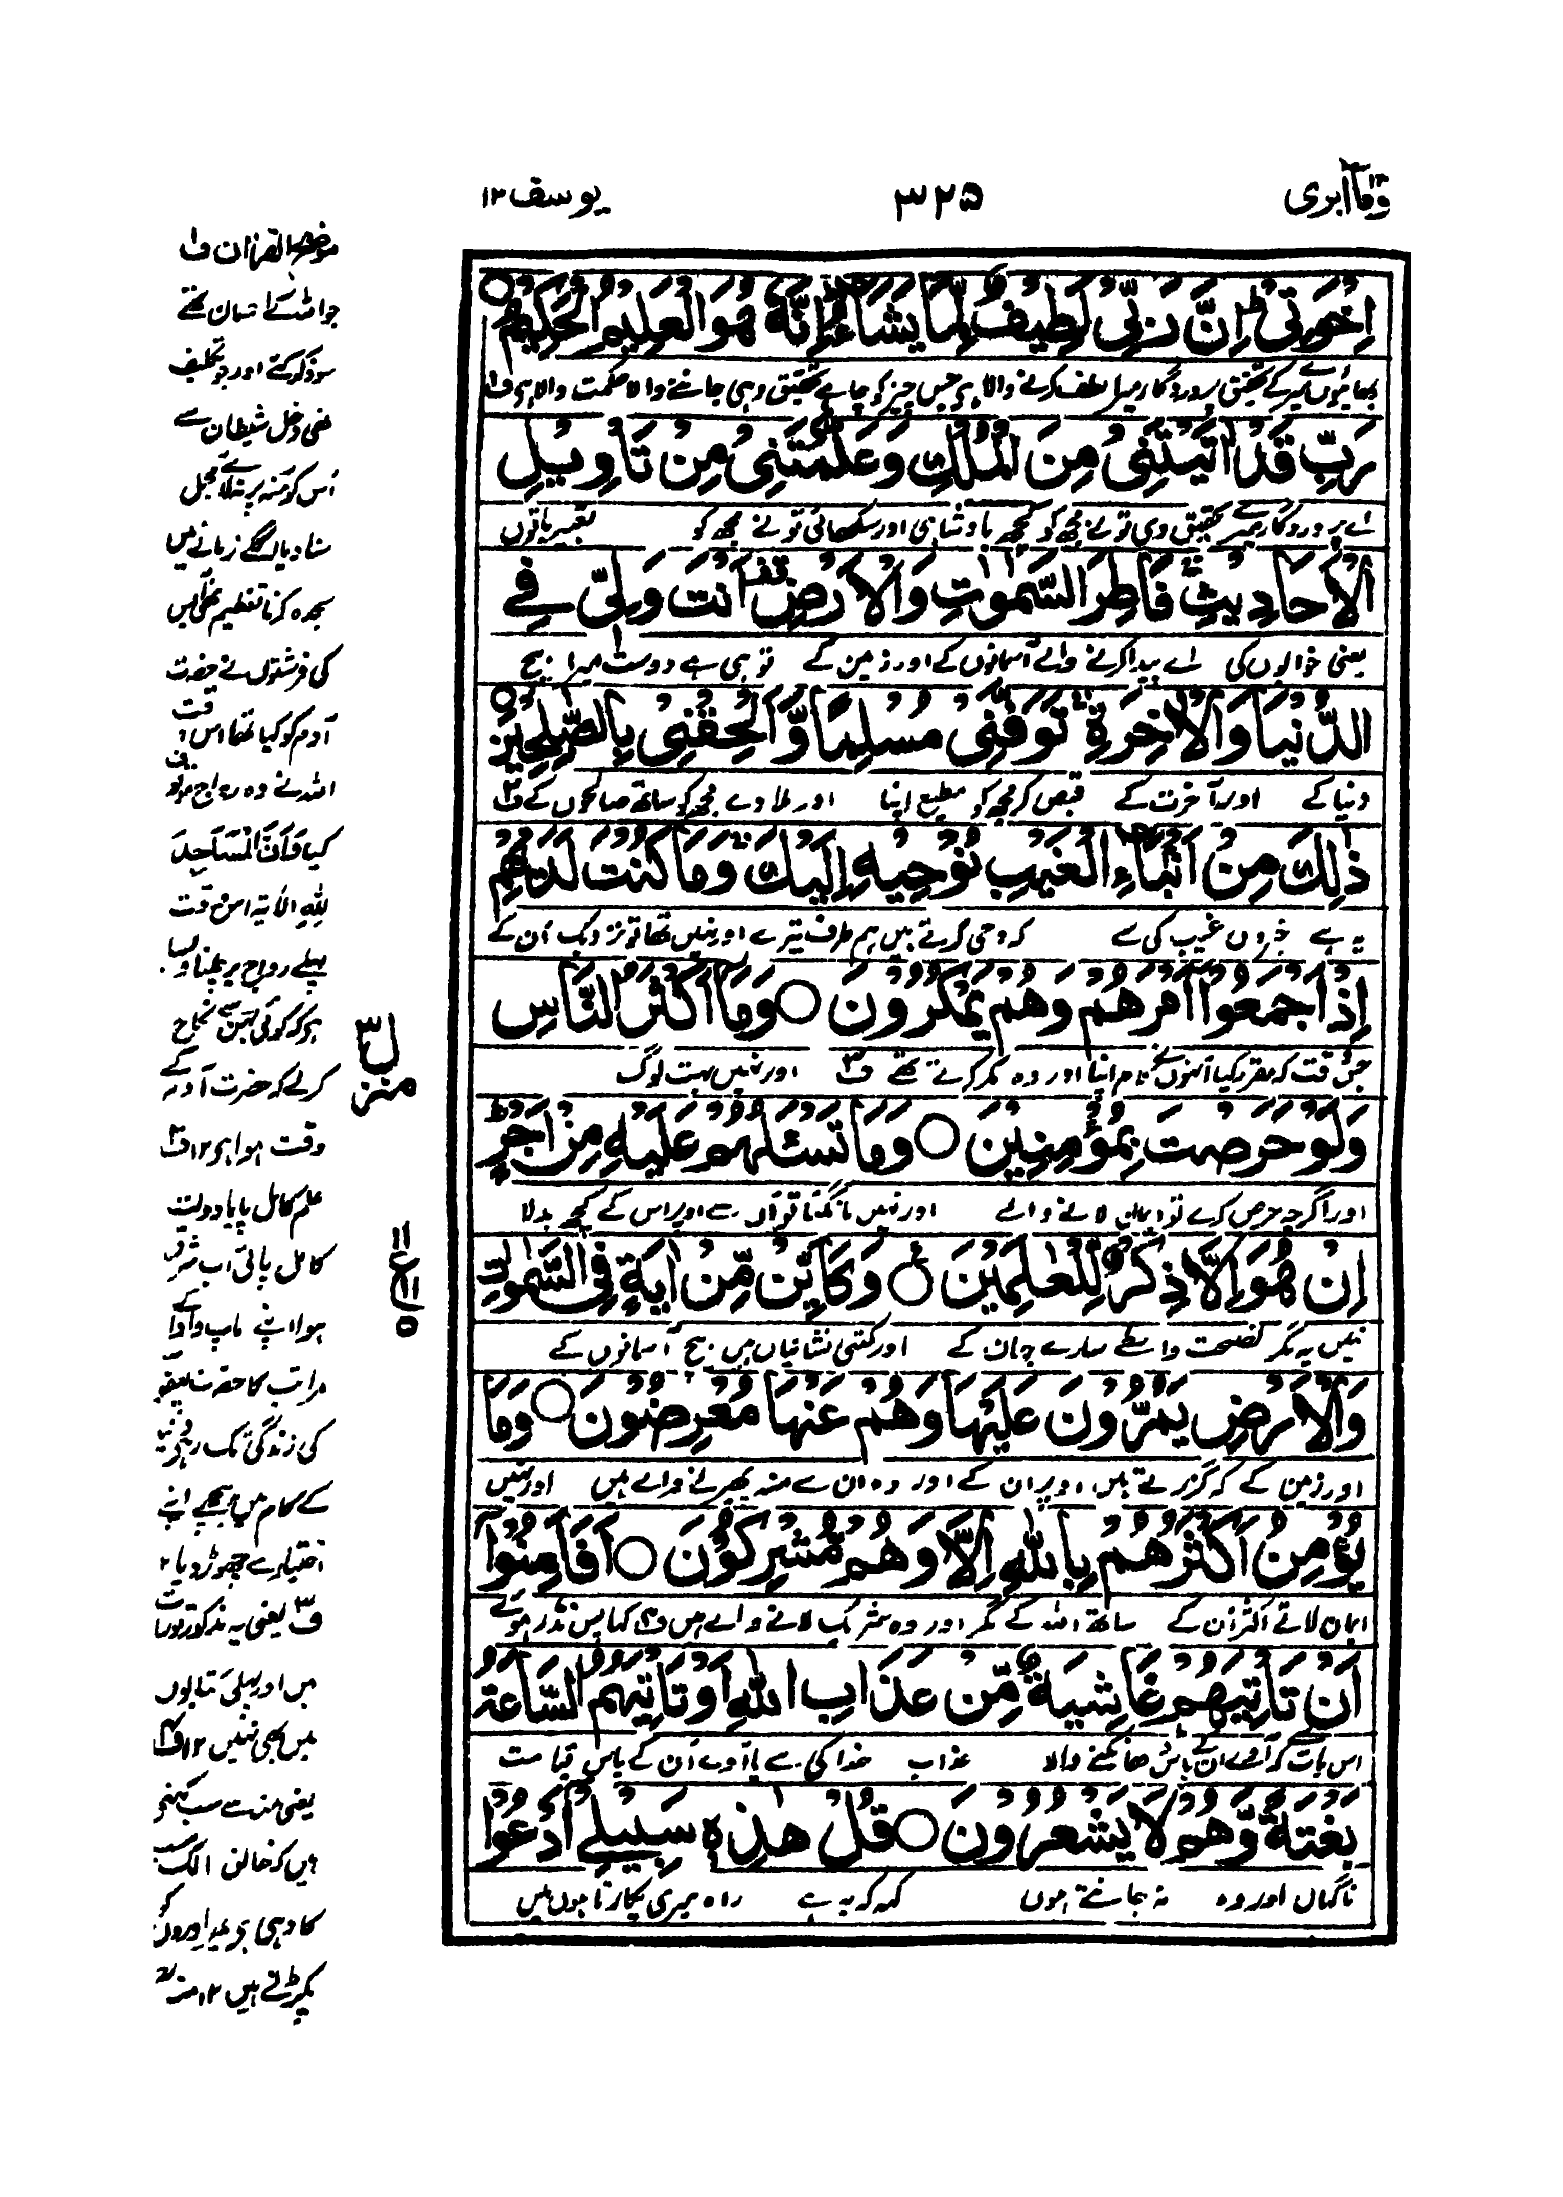 وَمَآ اُبَرِّئُ ۱۳
۳۲۵
یوسف ۱۲
اِخْوَتِیْ ؕ اِنَّ رَبِّیْ لَطِیْفٌ لِّمَا یَشَآءُ ؕ اِنَّهٗ هُوَ الْعَلِیْمُ الْحَكِیْمُ ○
بھائیوں میرے کے تحقیق پروردگار میرا لطف کرنے والا ہے جس چیز کو چاہے تحقیق وہی جاننے والا حکمت والا ہے ف۱
رَبِّ قَدْ اٰتَیْتَنِیْ مِنَ الْمُلْكِ وَ عَلَّمْتَنِیْ مِنْ تَاْوِیْلِ
اے پروردگار میرے تحقیق دی تو نے مجھ کو کچھ بادشاہی اور سکھائی تو نے مجھ کو تعبیر باتوں
الْاَحَادِیْثِ ۚ فَاطِرَ السَّمٰوٰتِ وَ الْاَرْضِ ۫ اَنْتَ وَلِیّٖ فِی
یعنی خوابوں کی اے پیدا کرنے والے آسمانوں کے اور زمین کے تو ہی ہے دوست میرا بیچ
الدُّنْیَا وَ الْاٰخِرَةِ ۚ تَوَفَّنِیْ مُسْلِمًا وَّ اَلْحِقْنِیْ بِالصّٰلِحِیْنَ ○
دنیا کے اور آخرت کے قبض کر مجھ کو مطیع اپنا اور ملا دے مجھ کو ساتھ صالحوں کے ف۲
ذٰلِكَ مِنْ اَنْۢبَآءِ الْغَیْبِ نُوْحِیْهِ اِلَیْكَ ۚ وَ مَا كُنْتَ لَدَیْهِمْ
یہ ہے خبروں غیب کی سے کہ وحی کرتے ہیں ہم طرف تیرے اور نہیں تھا تو نزدیک اُن کے
اِذْ اَجْمَعُوْۤا اَمْرَهُمْ وَ هُمْ یَمْكُرُوْنَ ○ وَ مَاۤ اَكْثَرُ النَّاسِ
جس وقت کہ مقرر کیا اُنہوں نے کام اپنا اور وہ مکر کرتے تھے ف۳ اور نہیں بہت لوگ
وَ لَوْ حَرَصْتَ بِمُؤْمِنِیْنَ ○ وَ مَا تَسْـَٔلُهُمْ عَلَیْهِ مِنْ اَجْرٍ ؕ
اور اگرچہ حرص کرے تو ایمان لانے والے اور نہیں مانگتا تو اُن سے اوپر اس کے کچھ بدلا
اِنْ هُوَ اِلَّا ذِكْرٌ لِّلْعٰلَمِیْنَ ○ وَ كَاَیِّنْ مِّنْ اٰیَةٍ فِی السَّمٰوٰتِ
نہیں یہ مگر نصیحت واسطے سارے جہان کے اور کتنی نشانیاں ہیں بیچ آسمانوں کے
وَ الْاَرْضِ یَمُرُّوْنَ عَلَیْهَا وَ هُمْ عَنْهَا مُعْرِضُوْنَ ○ وَ مَا
اور زمین کے کہ گزرتے ہیں اوپر ان کے اور وہ ان سے منہ پھیرنے والے ہیں اور نہیں
یُؤْمِنُ اَكْثَرُهُمْ بِاللّٰهِ اِلَّا وَ هُمْ مُّشْرِكُوْنَ ○ اَفَاَمِنُوْۤا
ایمان لاتے اکثر اُن کے ساتھ اللہ کے مگر اور وہ شریک لانے والے ہیں ف۴ کیا پس نڈر ہوئے
اَنْ تَاْتِیَهُمْ غَاشِیَةٌ مِّنْ عَذَابِ اللّٰهِ اَوْ تَاْتِیَهُمُ السَّاعَةُ
اس بات سے کہ آوے ان کے پاس ڈھانکنے والا عذاب خدا کی سے یا آوے اُن کے پاس قیامت
بَغْتَةً وَّ هُمْ لَا یَشْعُرُوْنَ ○ قُلْ هٰذِهٖ سَبِیْلِیْۤ اَدْعُوْۤا
ناگہاں اور وہ نہ جانتے ہوں کہہ کہ یہ ہے راہ میری پکارتا ہوں میں
موضح القرآن ف۱
جو اللہ کے احسان تھے
سو ذکر کئے اور جو تکلیف
تھی دخل شیطان سے
اُس کو منہ پر نہ لائے مجمل
سنا دیا اگلے زمانے میں
سجدہ کرنا تعظیم تھی آپس
کی فرشتوں نے حضرت
آدم کو کیا تھا اس وقت
اللہ نے وہ رواج موقوف
کیا وَاَنَّ الْمَسَاجِدَ
لِلّٰہِ الآیۃ اس وقت
پہلے رواج پر چلنا ویسا
ہے کہ کوئی بہن سے نکاح
کرلے کہ حضرت آدم کے
وقت ہوا ہے ۱۲ ف۲
علم کامل پایا دولت
کامل پائی اب شوق
ہوا اپنے باپ دادا کے
مراتب کا حضرت یعقوب
کی زندگی تک رہے دنیا
کے کام میں پیچھے اپنے
اختیار سے چھوڑ دیا ۱۲
ف۳ یعنی یہ مذکور تورات
میں اور پہلی کتابوں
میں بھی نہیں ۱۲ ف۴
یعنی منہ سے سب کہتے
ہیں کہ خالق مالک سب
کا وہی ہے پھر اوروں کو
پکڑتے ہیں ۱۲ منہ
منزل ۳
۱۱
ع
۱۱
۵